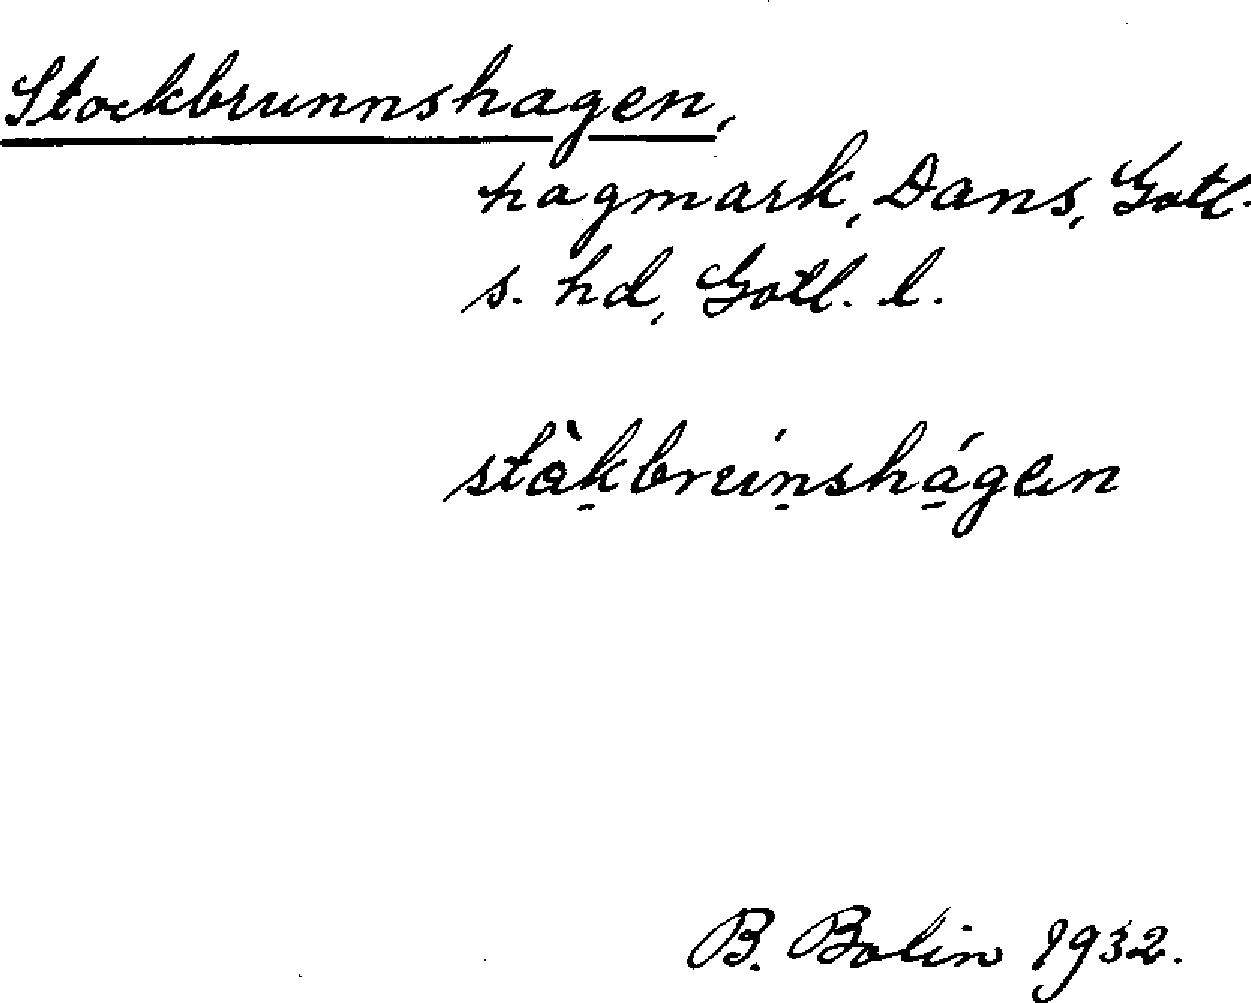 Stockbrunnshagen,
hagmark, Dans, Gotl.
s. hd, Gotl. l.
stàk̠brun̠shá̠gen
B. Bolin 1932.